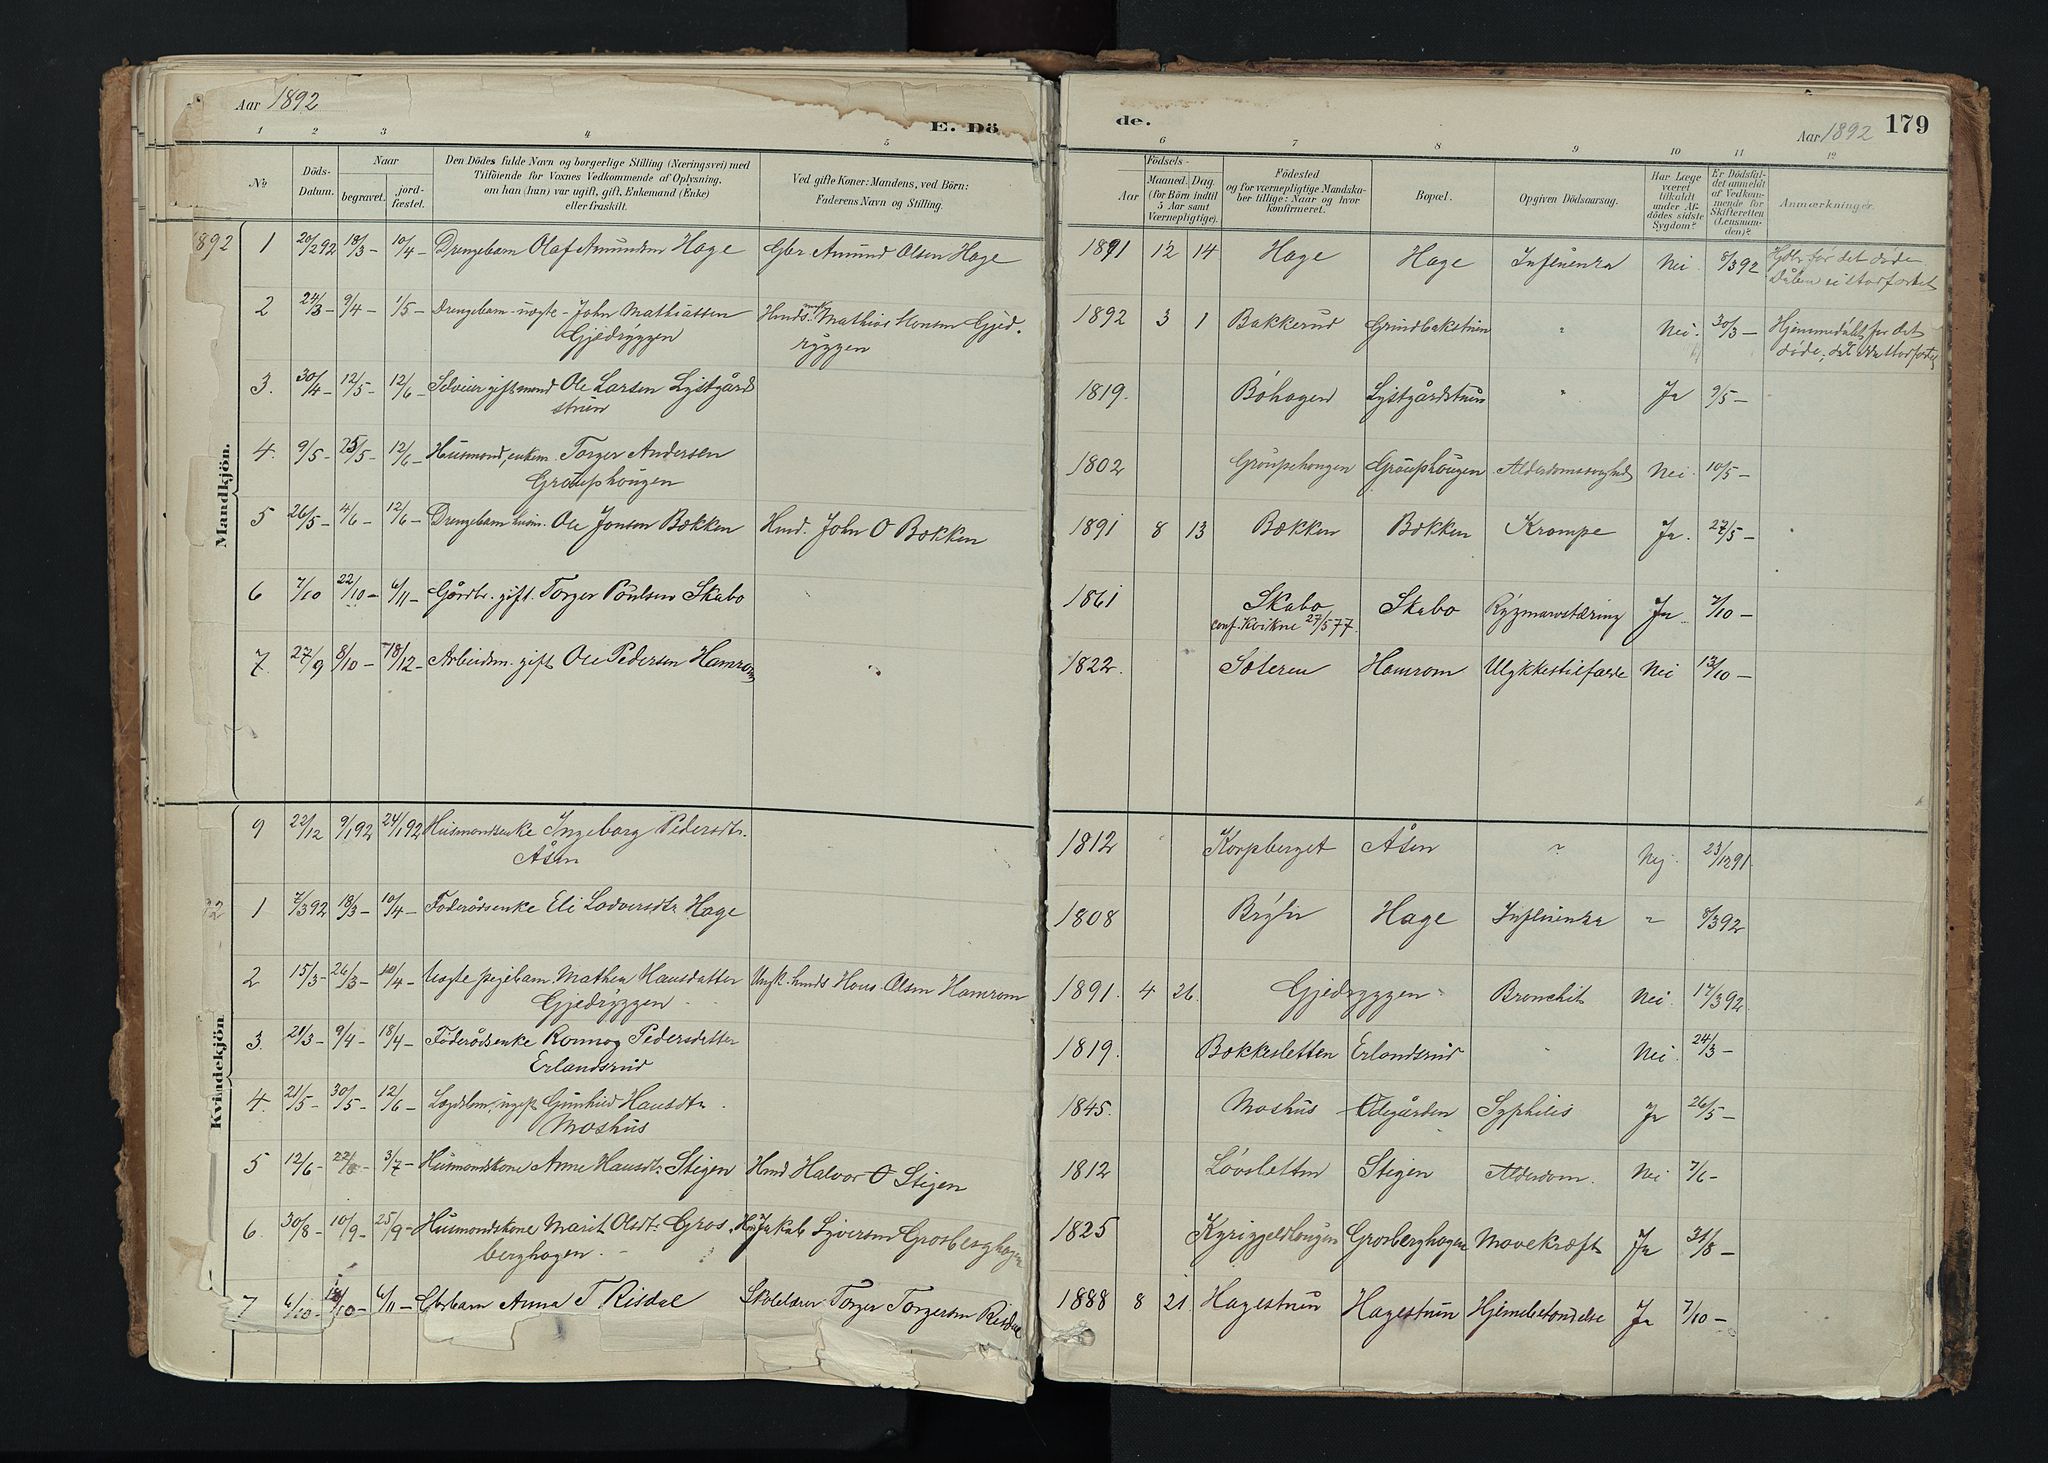 Aar 1892
E. Dö
de.
179
Aar 1892
1 2 3 4 5 6 7 8 9 10 11 12
No.
Döds-Datum.
Naar
begravet.
jord-fæstet.
Den Dödes fulde Navn og borgerlige Stilling (Næringsvei) med
Tilföiende for Voxnes Vedkommende af Oplysning,
om han (hun) var ugift, gift, Enkemand (Enke)
eller fraskilt.
Ved gifte Koner: Mandens, ved Börn:
Faderens Navn og Stilling.
Födsels-
Aar
Maaned. Dag.
(for Börn indtil
5 Aar samt
Værnepligtige).
Födested
og for værnepligtige Mandska-
ber tillige: Naar og hvor
konfirmeret.
Bopæl.
Opgiven Dödsaarsag.
Har Læge
været
tilkaldt
under Af-
dödes sidste
Sygdom?
Er Dödsfal-
det anmeldt
af Vedkom-
mende for
Skifteretten
(Lensman-
den)?
Anmærkninger.
Mandkjön.
1892 1 20/2 92 18/3 - 10/4 - Drengebarn Olaf Amundsen Hage Gbr. Amund Olsen Hage 1891 12 14 Hage Hage Influenza Nei 8/3 92 det døde
2 24/3 - 9/4 - 1/5 - Drengebarn uægte - John Mathiassen Mathias Hansen Gjed- 1892 3 1 Bakkerud Grindbakstuen " Nei. 30/3 - Hjemmedøbt, før det
Gjedryggen ryggen døde,
3. 30/4 - 12/5 - 12/6 - Selveier gift mand Ole Larsen Lystgård 1819. Bøhagen Lystgårdstuen " Ja 9/5 -
stuen
4. 9/5 - 25/5 - 12/6 - Husmand, enkem. Torger Andersen 1802 Graupehougen Grauphougen Alderdomssvaghed Nei. 10/5 -
Grauphougen
5 26/5 - 4/6 - 12/6 - Drengebarn Ole Jonsen Bækken Hmd. John O Bækken 1891 8 13 Bækken Bækken Krampe Ja. 27/5 -
6 7/10 22/10 - 6/11 - Gårdbr. gift. Torger Poulsen Skabo 1861 Skabo Skabo Rygmarvstæring Ja. 7/10 -
conf. Kvikne 27/5 77.
7. 27/9 8/10 - 18/12 - Arbeidsm. gift Ole Pedersen Hamrom " 1822. Sæteren Hamrom Ulykkestilfælde Nei 13/10 -
Kvindekjön
9 22/12 9/1 92 24/1 92 Husmandsenke Ingeborg Pedersdtr. 1812 " Korpberget Åsen " Nej. 23/12 91.
Åsen
1 7/3 92 18/3 - 10/4 - Føderådsenke Eli Lodversdtr. Hage 1808 Hage Influenza " 8/3 92
2 15/3 - 26/3 - 10/4 - Uægte pigebarn Mathea Hansdatter Ungk. Hans Olsen Hamrom 1891. 4 26. Gjedryggen Bronchit Nei. 17/3 92
Gjedryggen
3. 21/3 - 9/4 - 18/4 - Føderådsenke Ronnog Pedersdatter 1819. Bakkesletten Erlandsrud " Nei. 24/3 -
Erlandsrud
4. 21/5 - 30/5 - 12/6 - Lægdslem, ugift Gunhild Hansdtr. 1845. Moshus Ødegården Syphilis Ja 26/5 -
Moshus
5 12/6 - 3/7 - Husmandskone Anne Hansdtr. Stigen Hmd Halvor O Stigen 1812 Løvsletten Stigen Alderdom. Nei 7/6 -
6. 30/8 - 10/9 - 25/9 - Husmandskone Marit Olsdtr. Gros- Jakob Syversen Grosberghagen 1825 Kyrigjeldhougen Grosberghagen Mavekræft Ja 31/8 -
berghagen.
7 6/10 - 6/11 - Anna T. Risdal Skolelærer Torger Torgersen Risdal 1888 8 21 Hagestuen Hagestuen Hjernebetændelse Ja 7/10 -